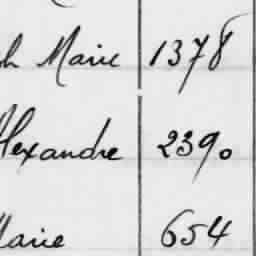 ph Marie 1378
Alexandre 2390
Marie 654